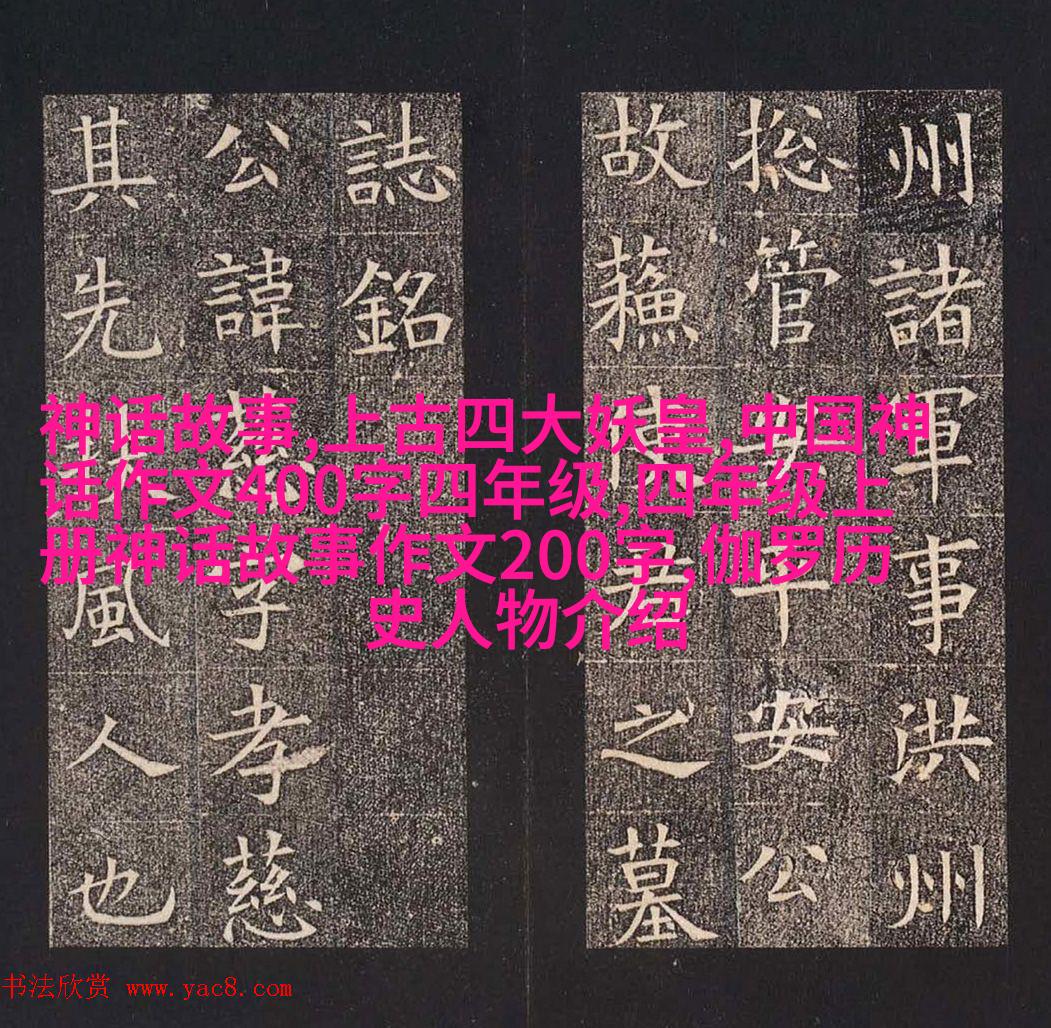 州諸軍事洪州
捴管安平安公
故蘓使君之墓
誌銘
公諱慈字孝慈
其先扶風人也
神话故事,上古四大妖皇,中国神
话作文400字四年级,四年级上
册神话故事作文200字,伽罗历
史人物介绍
书法欣赏 www.yac8.com